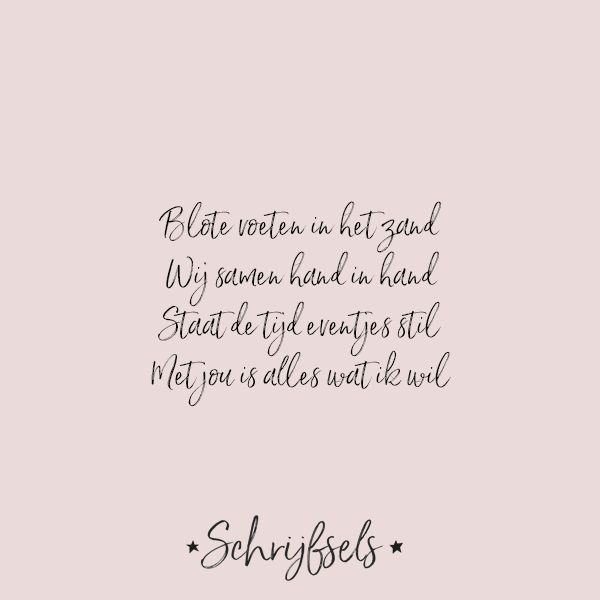 Blote voeten in het zand
Wij samen hand in hand
Staat de tijd eventjes stil
Met jou is alles wat ik wil
★Schrijfsels★